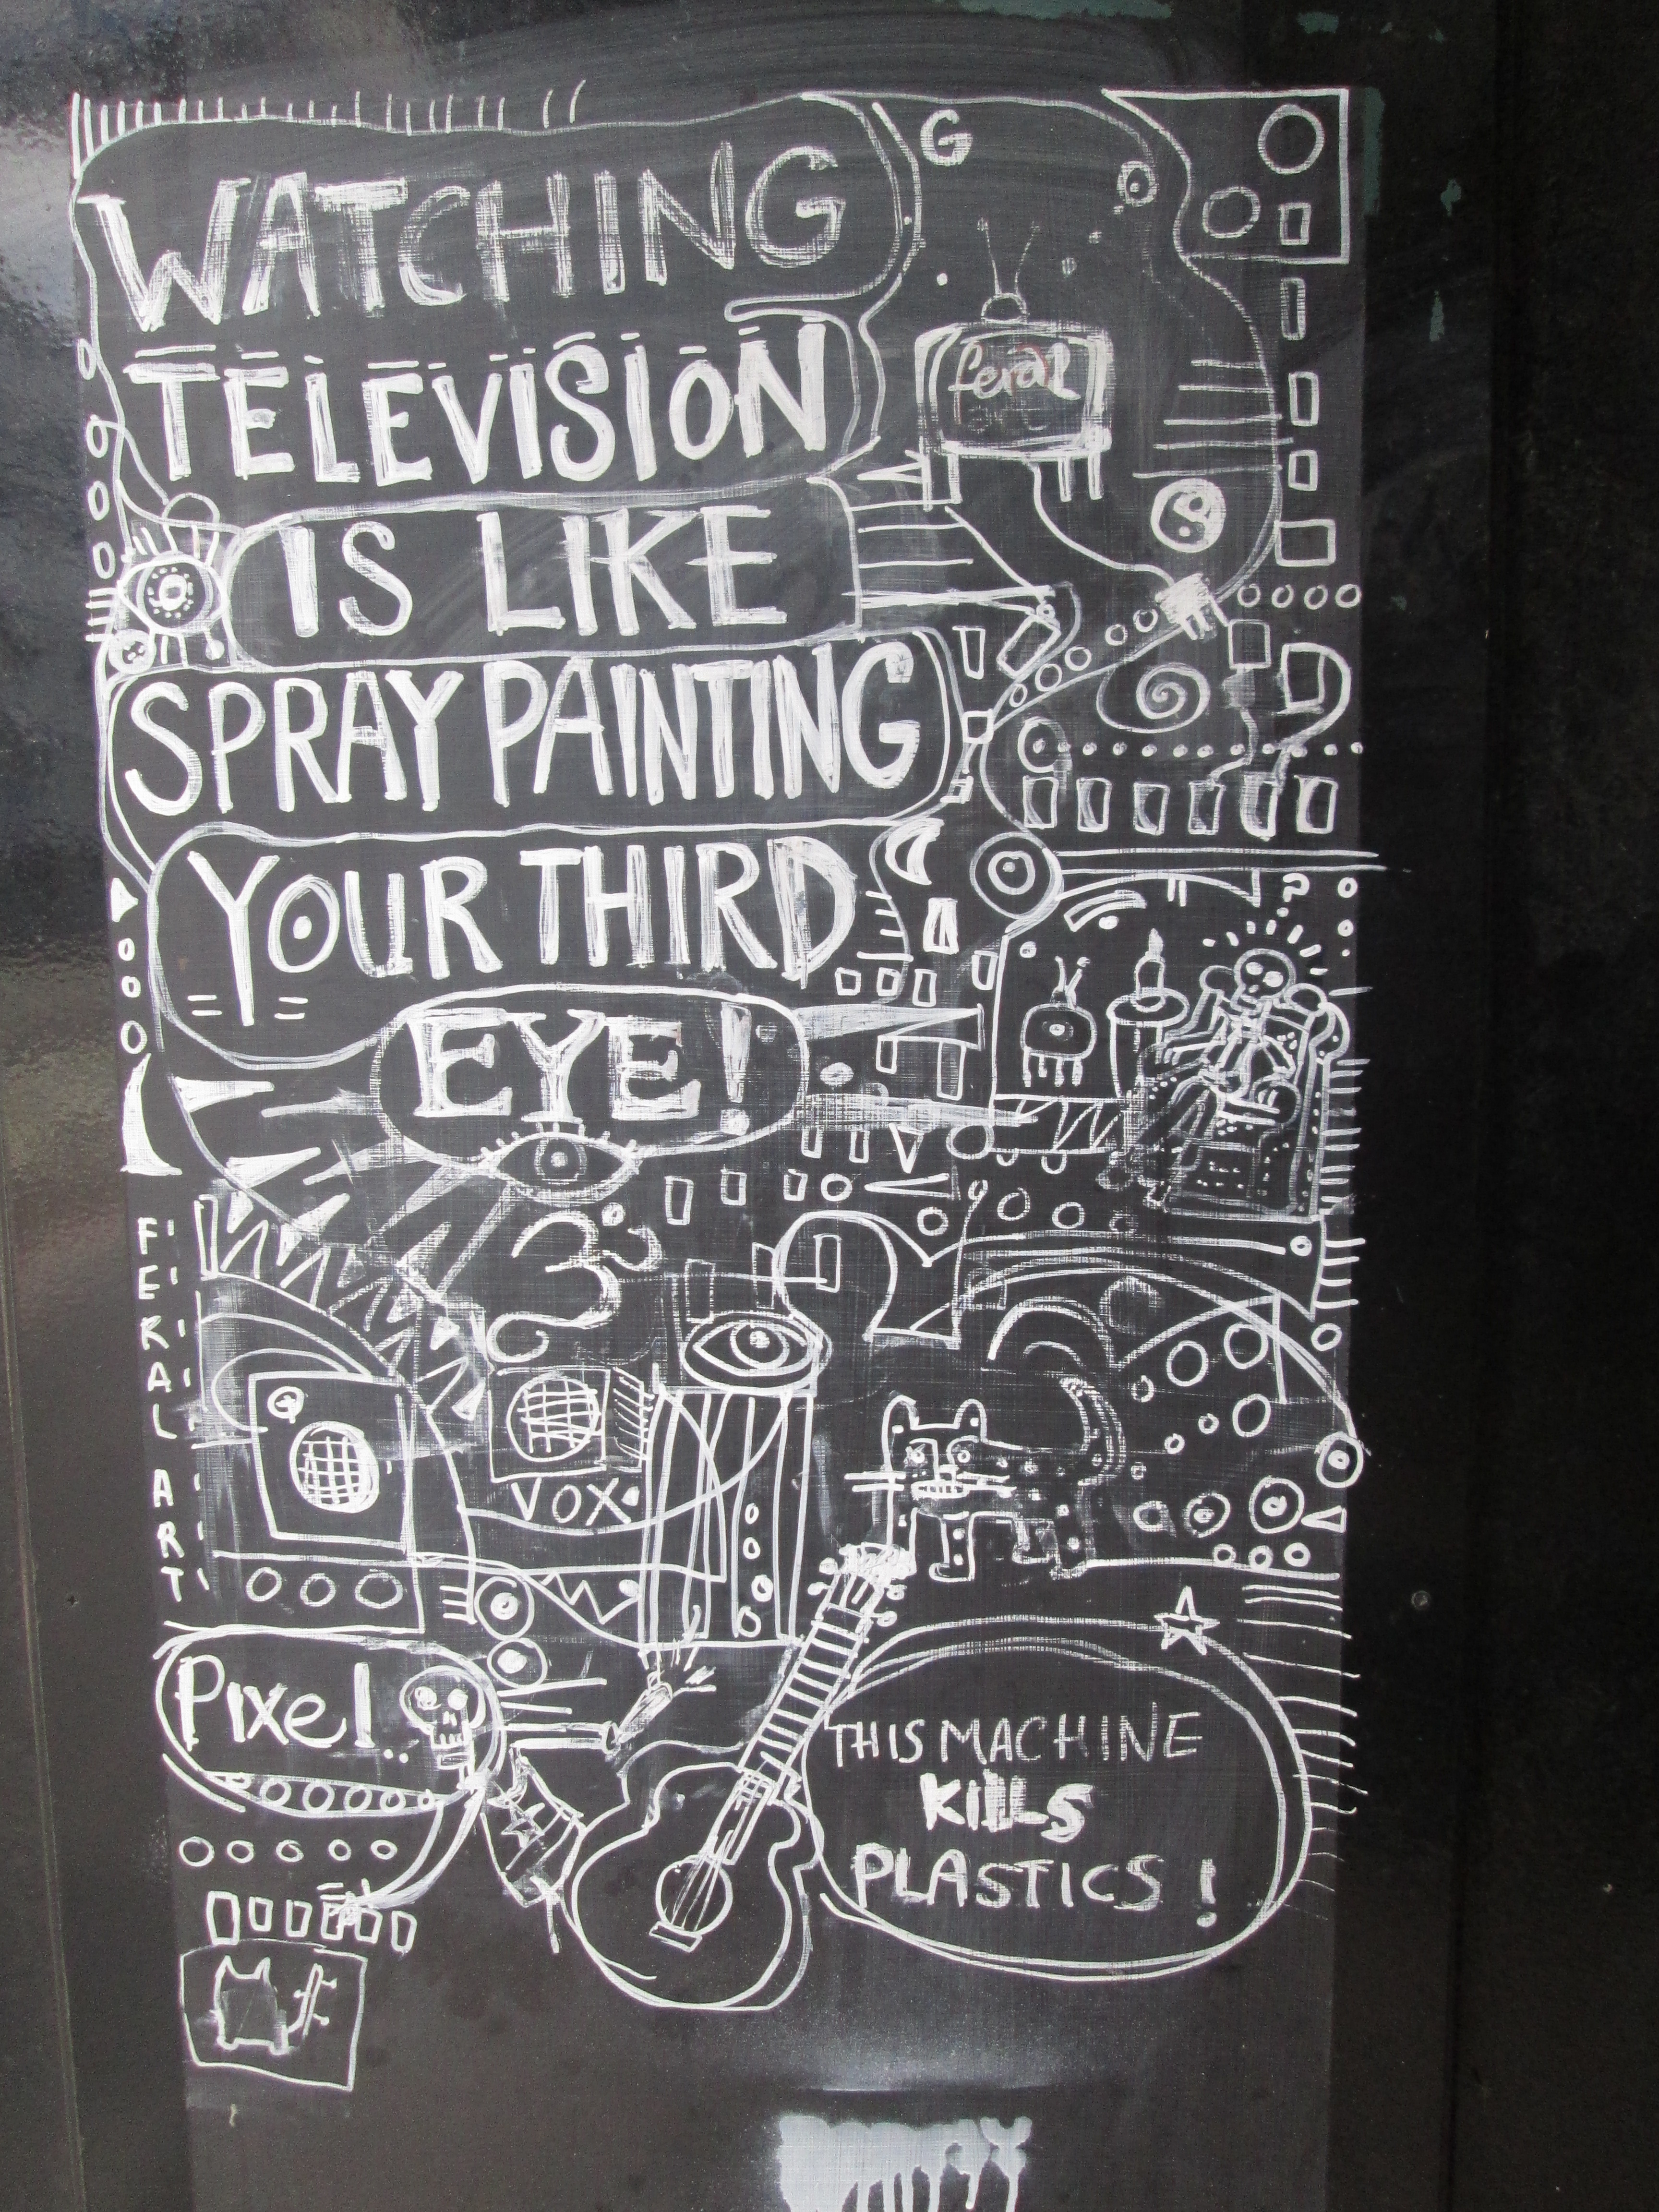 WATCHING
TELEVISION
IS LIKE
SPRAY PAINTING
YOUR THIRD
EYE!
G
feral
?
FERAL ART
VOX
Pixel..
THIS MACHINE
KILLS
PLASTICS!